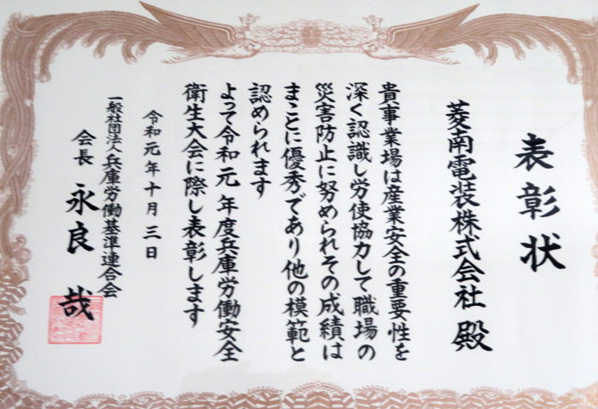 表彰状
菱南電装株式会社 殿
貴事業場は産業安全の重要性を
深く認識し労使協力して職場の
災害防止に努められその成績は
まことに優秀であり他の模範と
認められます
よって令和元年度兵庫労働安全
衛生大会に際し表彰します
令和元年十月三日
一般社団法人兵庫労働基準連合会
会長 永良 哉